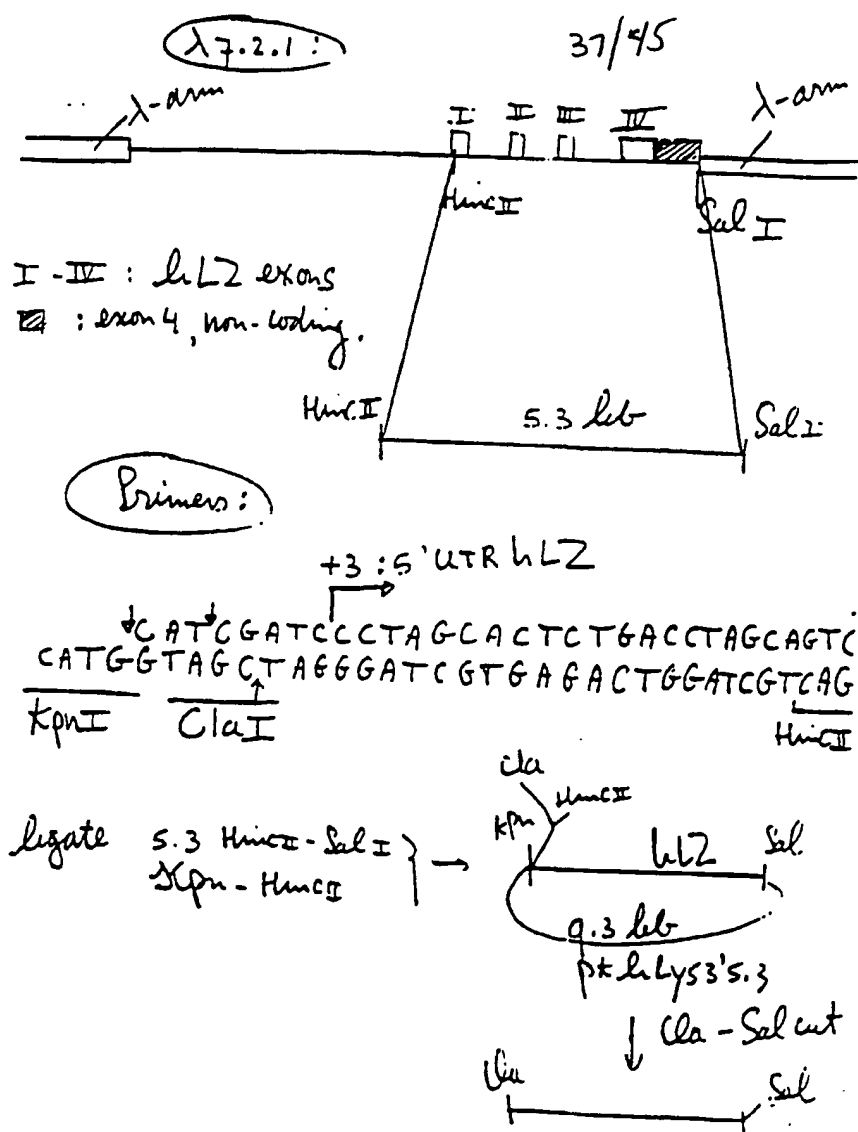 λ7.2.1 :
37/45
λ-arm
λ-arm
I II III IV
Hinc II
Sal I
I - IV : hLZ exons
: exon 4, non-coding.
Hinc II 5.3 kb Sal I
Primers :
+3 : 5' UTR hLZ
CATCGATCCCTAGCACTCTGACCTAGCAGTC
CATGGTAGCTAGGGATCGTGAGACTGGATCGTCAG
KpnI ClaI HincII
Cla
HincII
Kpn hLZ Sal
ligate 5.3 HincII-Sal I
Kpn-HincII
9.3 kb
hLys3'5.3
Cla - Sal cut
Cla Sal